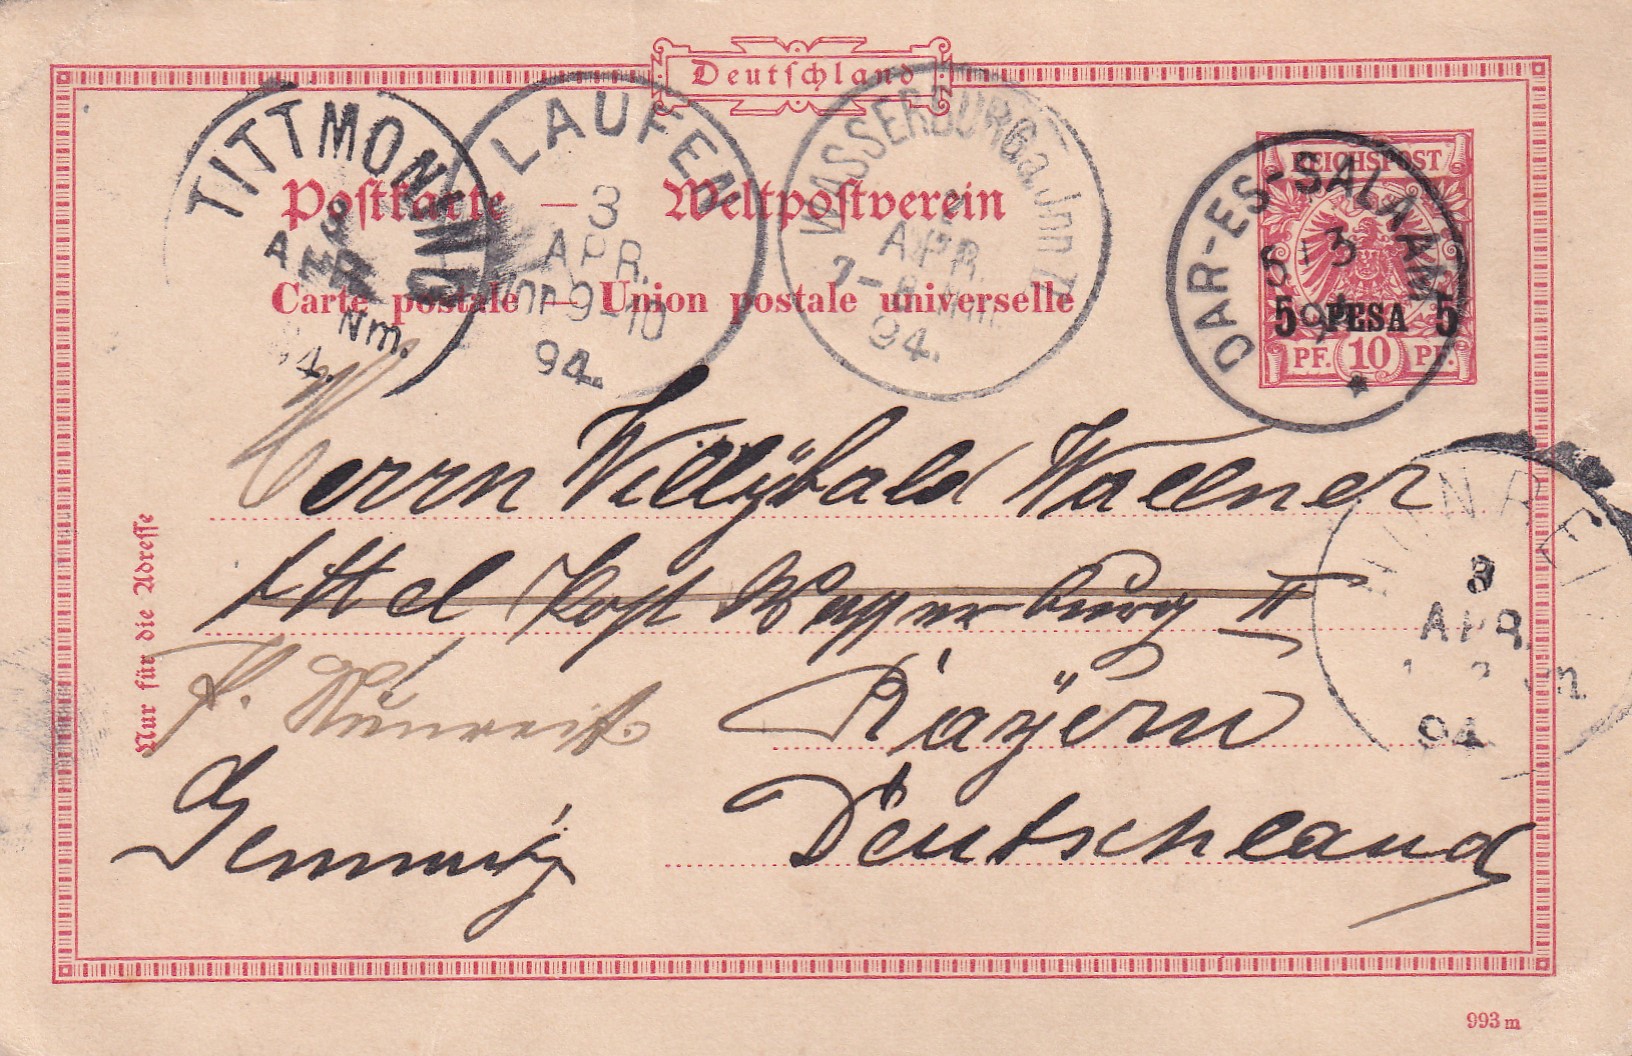 Deutschland
Postkarte — Weltpostverein
Carte postale — Union postale universelle
TITTMONING
APR.
Nm.
94.
LAUFEN
3
APR.
Vm 9-10
94.
WASSERBURG a. Inn
APR.
7-8
94.
REICHSPOST
5 PESA 5
PF. 10 PF.
DAR-ES-SALAAM
3
94
Herrn Willÿbald Wallner
Attel Post Wasserburg II
Bayern
Deutschland
Germany
3
APR.
94
Nur für die Adresse
993 m